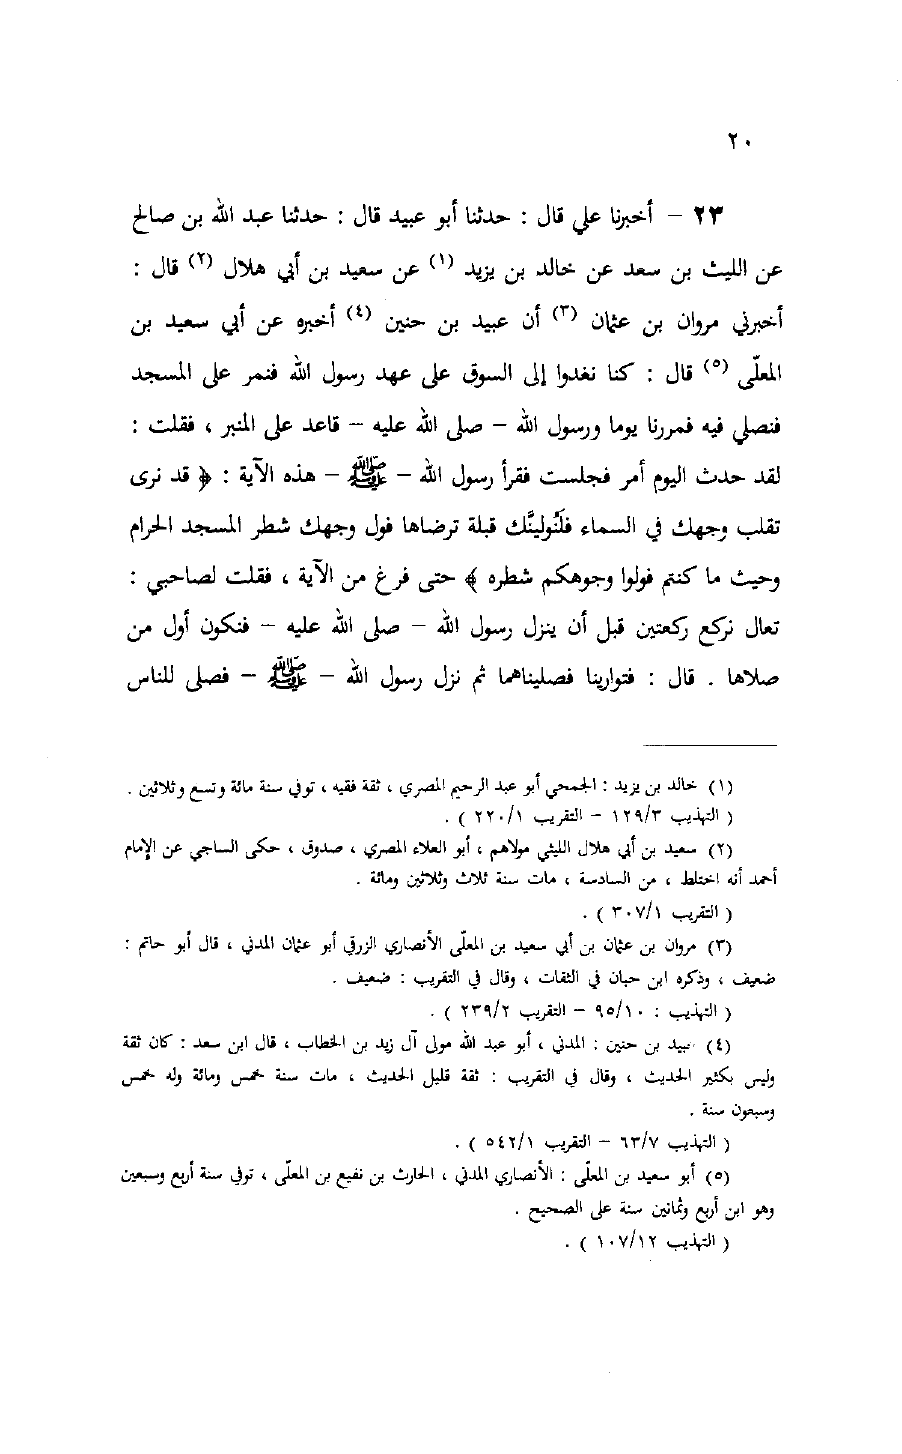 ٢٠
٢٣ – أخبرنا علي قال : حدثنا أبو عبيد قال : حدثنا عبد الله بن صالح
عن الليث بن سعد عن خالد بن يزيد (١) عن سعيد بن أبي هلال (٢) قال :
أخبرني مروان بن عثمان (٣) أن عبيد بن حنين (٤) أخبره عن أبي سعيد بن
المعلّى (٥) قال : كنا نغدوا إلى السوق على عهد رسول الله فنمر على المسجد
فنصلي فيه فمررنا يوما ورسول الله – صلى الله عليه – قاعد على المنبر ، فقلت :
لقد حدث اليوم أمر فجلست فقرأ رسول الله – ﷺ – هذه الآية : ﴿ قد نرى
تقلب وجهك في السماء فلَنُولينَّك قبلة ترضاها فول وجهك شطر المسجد الحرام
وحيث ما كنتم فولوا وجوهكم شطره ﴾ حتى فرغ من الآية ، فقلت لصاحبي :
تعال نركع ركعتين قبل أن ينزل رسول الله – صلى الله عليه – فنكون أول من
صلاها . قال : فتوارينا فصليناهما ثم نزل رسول الله – ﷺ – فصلى للناس
(١) خالد بن يزيد : الجمحي أبو عبد الرحيم المصري ، ثقة فقيه ، توفي سنة مائة وتسع وثلاثين .
( التهذيب ١٢٩/٣ – التقريب ٢٢٠/١ ) .
(٢) سعيد بن أبي هلال الليثي مولاهم ، أبو العلاء المصري ، صدوق ، حكى الساجي عن الإمام
أحمد أنه اختلط ، من السادسة ، مات سنة ثلاث وثلاثين ومائة .
( التقريب ٣٠٧/١ ) .
(٣) مروان بن عثمان بن أبي سعيد بن المعلّى الأنصاري الزرقي أبو عثمان المدني ، قال أبو حاتم :
ضعيف ، وذكره ابن حبان في الثقات ، وقال في التقريب : ضعيف .
( التهذيب : ٩٥/١٠ – التقريب ٢٣٩/٢ ) .
(٤) عبيد بن حنين : المدني ، أبو عبد الله مولى آل زيد بن الخطاب ، قال ابن سعد : كان ثقة
وليس بكثير الحديث ، وقال في التقريب : ثقة قليل الحديث ، مات سنة خمس ومائة وله خمس
وسبعون سنة .
( التهذيب ٦٣/٧ – التقريب ٥٤٢/١ ) .
(٥) أبو سعيد بن المعلّى : الأنصاري المدني ، الحارث بن نفيع بن المعلّى ، توفي سنة أربع وسبعين
وهو ابن أربع وثمانين سنة على الصحيح .
( التهذيب ١٠٧/١٢ ) .